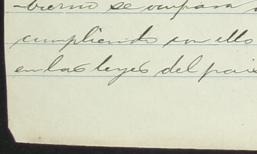 -bierno se ocupara
cumpliendo con ello
en las leyes del pais